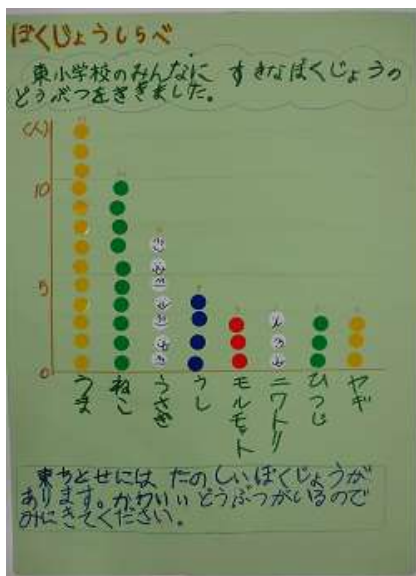 ぼくじょうしらべ
東小学校のみんなに すきなぼくじょうの
どうぶつをききました。
(人)
10
5
0
うま
ねこ
うさぎ
うし
モルモット
ニワトリ
ひつじ
ヤギ
東ちとせには たのしいぼくじょうが
あります。かわいい どうぶつがいるので
みにきてください。